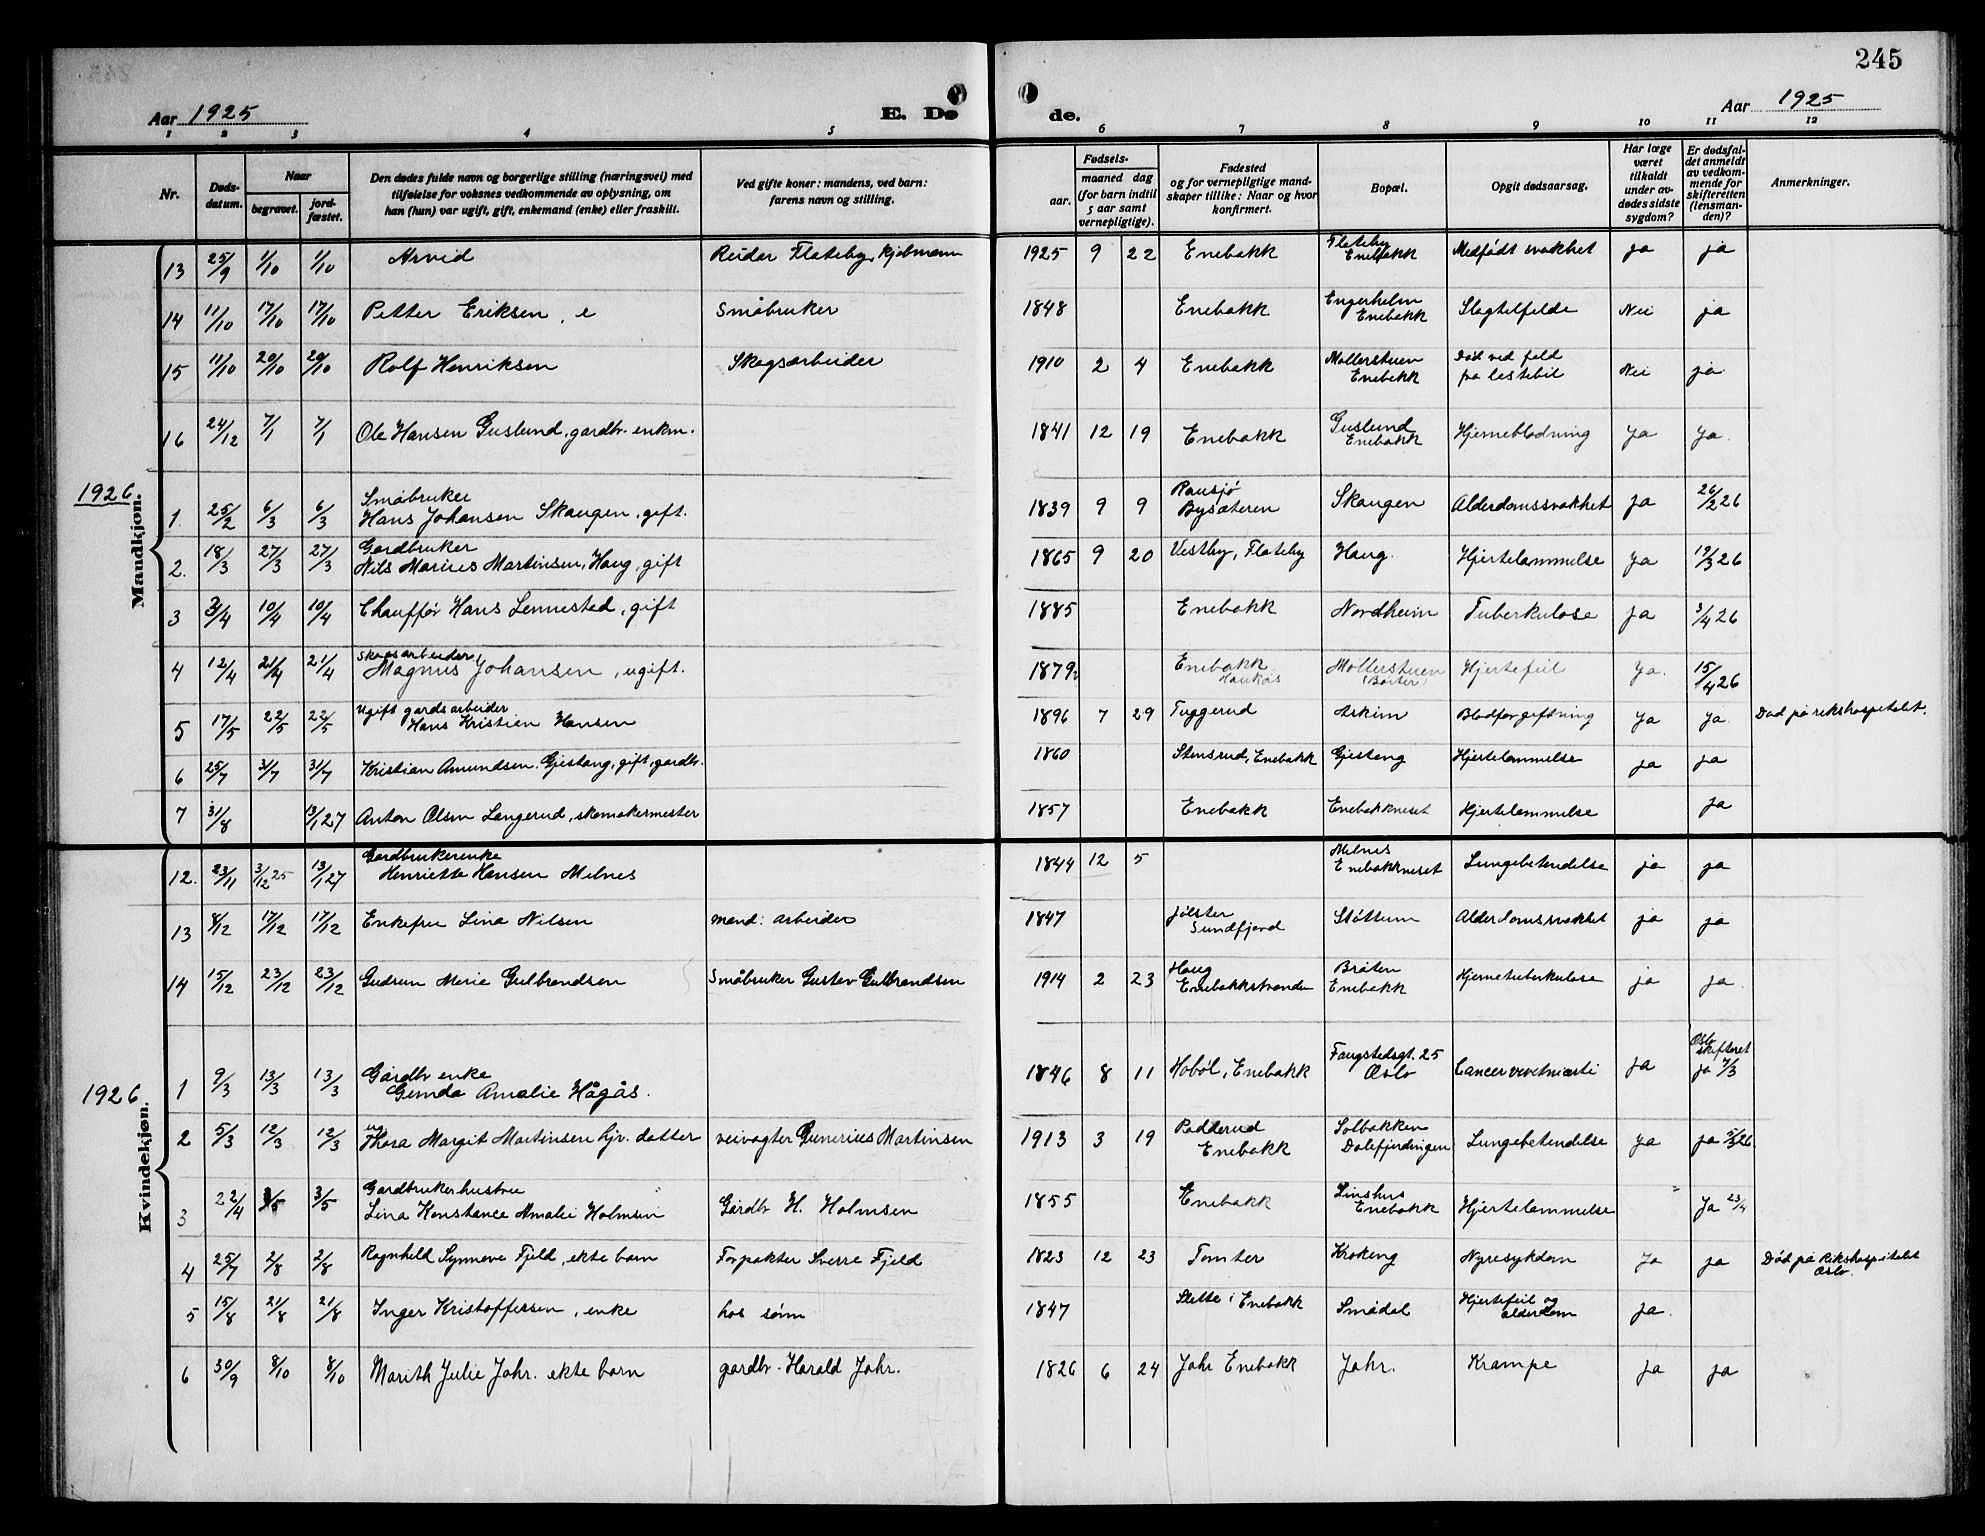 245
Aar 1925 E. Dø de. Aar 1925
1 2 3 4 5 6 7 8 9 10 11 12
Nr. Døds-datum. Naar begravet. jord-fæstet. Den dødes fulde navn og borgerlige stilling (næringsvei) med tilføielse for voksnes vedkommende av oplysning, om han (hun) var ugift, gift, enkemand (enke) eller fraskilt. Ved gifte koner: mandens, ved barn: farens navn og stilling. Fødsels- aar. maaned dag (for barn indtil 5 aar samt vernepligtige). Fødested og for vernepligtige mandskaper tillike: Naar og hvor konfirmert. Bopæl. Opgit dødsaarsag. Har læge været tilkaldt under avdødes sidste sygdom? Er dødsfaldet anmeldt av vedkommende for skifteretten (lensmanden)? Anmerkninger.
Mandkjøn.
13 25/9 1/10 1/10 Arvid Reidar Flateby, kjøbmann 1925 9 22 Enebakk Flateby Enebakk Medfødt svakhet ja ja
14 11/10 17/10 17/10 Petter Eriksen, e Småbruker 1848 Enebakk Engerholm Enebakk Slagtilfelde Nei ja
15 11/10 20/10 20/10 Rolf Henriksen Skogsarbeider 1910 2 4 Enebakk Møllerstuen Enebakk Død ved fald fra lastebil Nei ja
16 24/12 7/1 7/1 Ole Hansen Guslund, gardbr. enkm. 1841 12 19 Enebakk Guslund Enebakk Hjerneblødning ja ja.
1926
1. 25/2 6/3 6/3 Småbruker Hans Johansen Skaugen, gift. 1839 9 9 Rausjø Bysæteren Skaugen Alderdomssvakhet ja 26/2 26
2. 18/3 27/3 27/3 Gardbruker Nils Marius Martinsen, Haug, gift 1865 9 20 Vestby, Flateby Haug. Hjertelammelse ja 19/3 26
3 3/4 10/4 10/4 Chauffør Hans Lennestad, gift 1885 Enebakk Nordheim Tuberkulose ja 3/4 26
4 12/4 21/4 21/4 Skogsarbeider Magnus Johansen, ugift. 1879 Enebakk Haukås Møllerstuen (Børter) Hjertefeil ja. 15/4 26
5 17/5 22/5 22/5 Ugift gardsarbeider Hans Kristian Hansen 1896 7 29 Tuggerud Askim Blodforgiftning ja ja. Død på rikshospitalet.
6 25/7 31/7 31/7 Kristian Amundsen Gjestang, gift, gardbr. 1860 Stensrud, Enebakk Gjestang Hjertelammelse ja ja
7 31/8 13/1 27 Anton Olsen Langerud, skomakermester 1857 Enebakk Enebakkneset Hjertelammelse ja
Kvindekjøn.
12. 23/11 3/12 25 13/1 27 Gardbrukerenke Henriette Hansen Melnes 1844 12 5 Melnes Enebakkneset Lungebetendelse ja ja
13 8/12 17/12 17/12 Enkefru Lina Nilsen mand: arbeider 1847 Jølster Sundfjord Støttum Alderdomssvakhet ja ja
14 15/12 23/12 23/12 Gudrun Marie Gulbrandsen Småbruker Gustav Gulbrandsen 1914 2 23 Haug Enebakkstranden Bråten Enebakk Hjernetuberkulose ja ja.
1926
1 9/3 13/3 13/3 Gårdbr enke Gunda Amalie Hågås. 1846 8 11 Hobøl, Enebakk Faugstedsgt. 25 Oslo Cancer ja Oslo skifteret ja 7/3
2 5/3 12/3 12/3 ug Thora Margit Martinsen hjv. datter veivogter Gunerius Martinsen 1913 3 19 Padderud Enebakk Solbakken Dalefjerdingen Lungebetendelse ja ja 5/3 26.
3 22/4 3/5 3/5 Gardbrukerhustru Lina Konstance Amalie Holmsen Gårdbr H. Holmsen 1855 Enebakk Linshus Enebakk Hjertelammelse Ja 23/4
4 25/7 2/8 2/8 Ragnhild Synnøve Fjeld, ekte barn Forpakter Sverre Fjeld 1823 12 23 Tomter Krokeng Nyresykdom Ja ja Død på Rikshospitalet Oslo.
5 15/8 21/8 21/8 Inger Kristoffersen, enke hos sønn 1847 Slette i Enebakk Smådal Hjertefeil og alderdom ja.
6 30/9 8/10 8/10 Marith Julie Jahr. ekte barn gardbr. Harald Jahr. 1826 6 24 Jahr Enebakk Jahr. Krampe ja ja